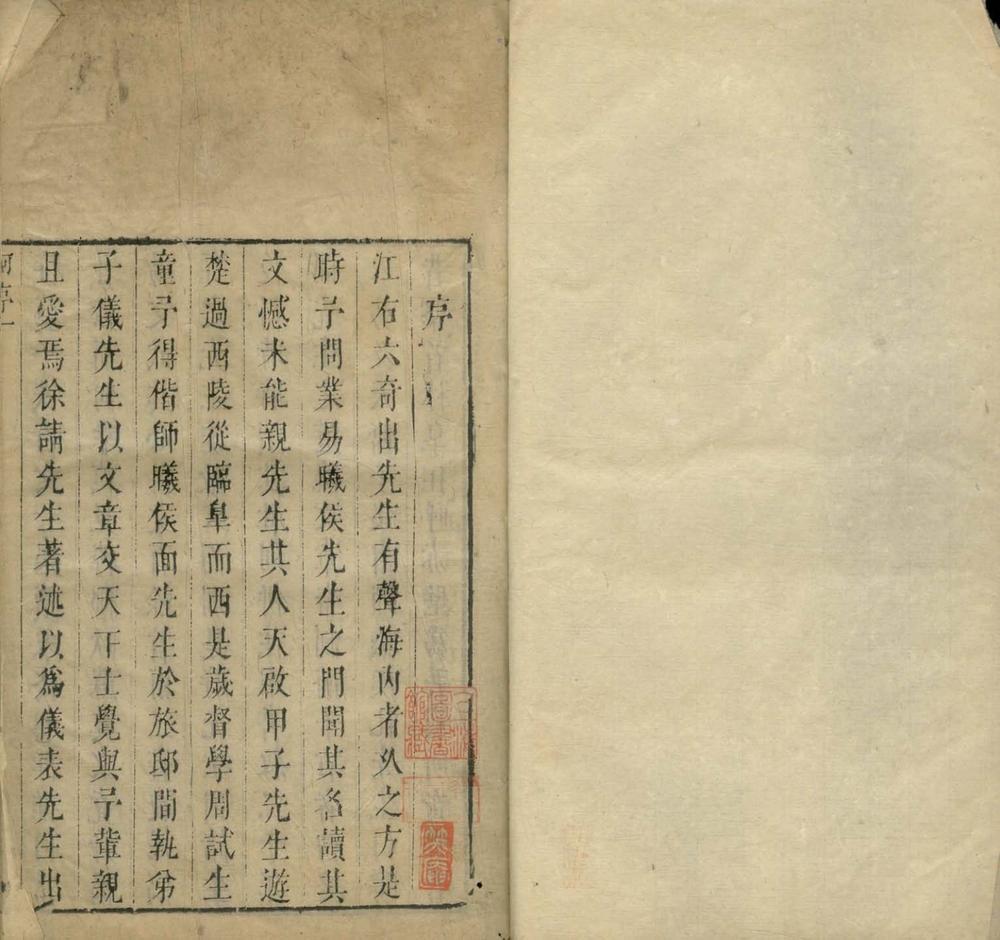 序
江右六奇出先生有聲海内者久之方是
時予問業易曦侯先生之門聞其名讀其
文憾未能親先生其人天啟甲子先生遊
楚過西陵從臨臯而西是歲督學周試生
童予得偕師曦侯面先生於旅邸間執弟
子儀先生以文章交天下士覺與予輩親
且愛焉徐請先生著述以爲儀表先生出
序一